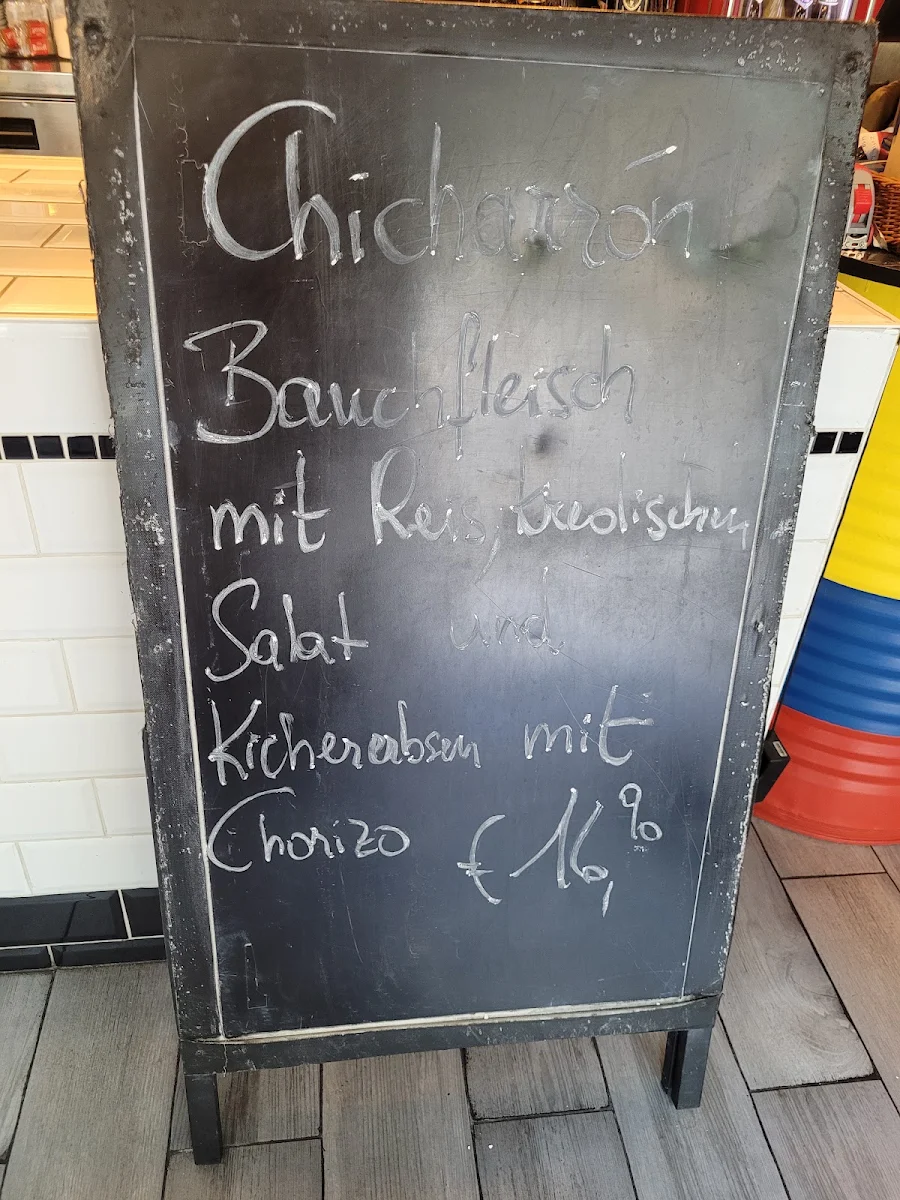 Chicharrón
Bauchfleisch
mit Reis,
Salat und
Kichererbsen mit
Chorizo €16,90